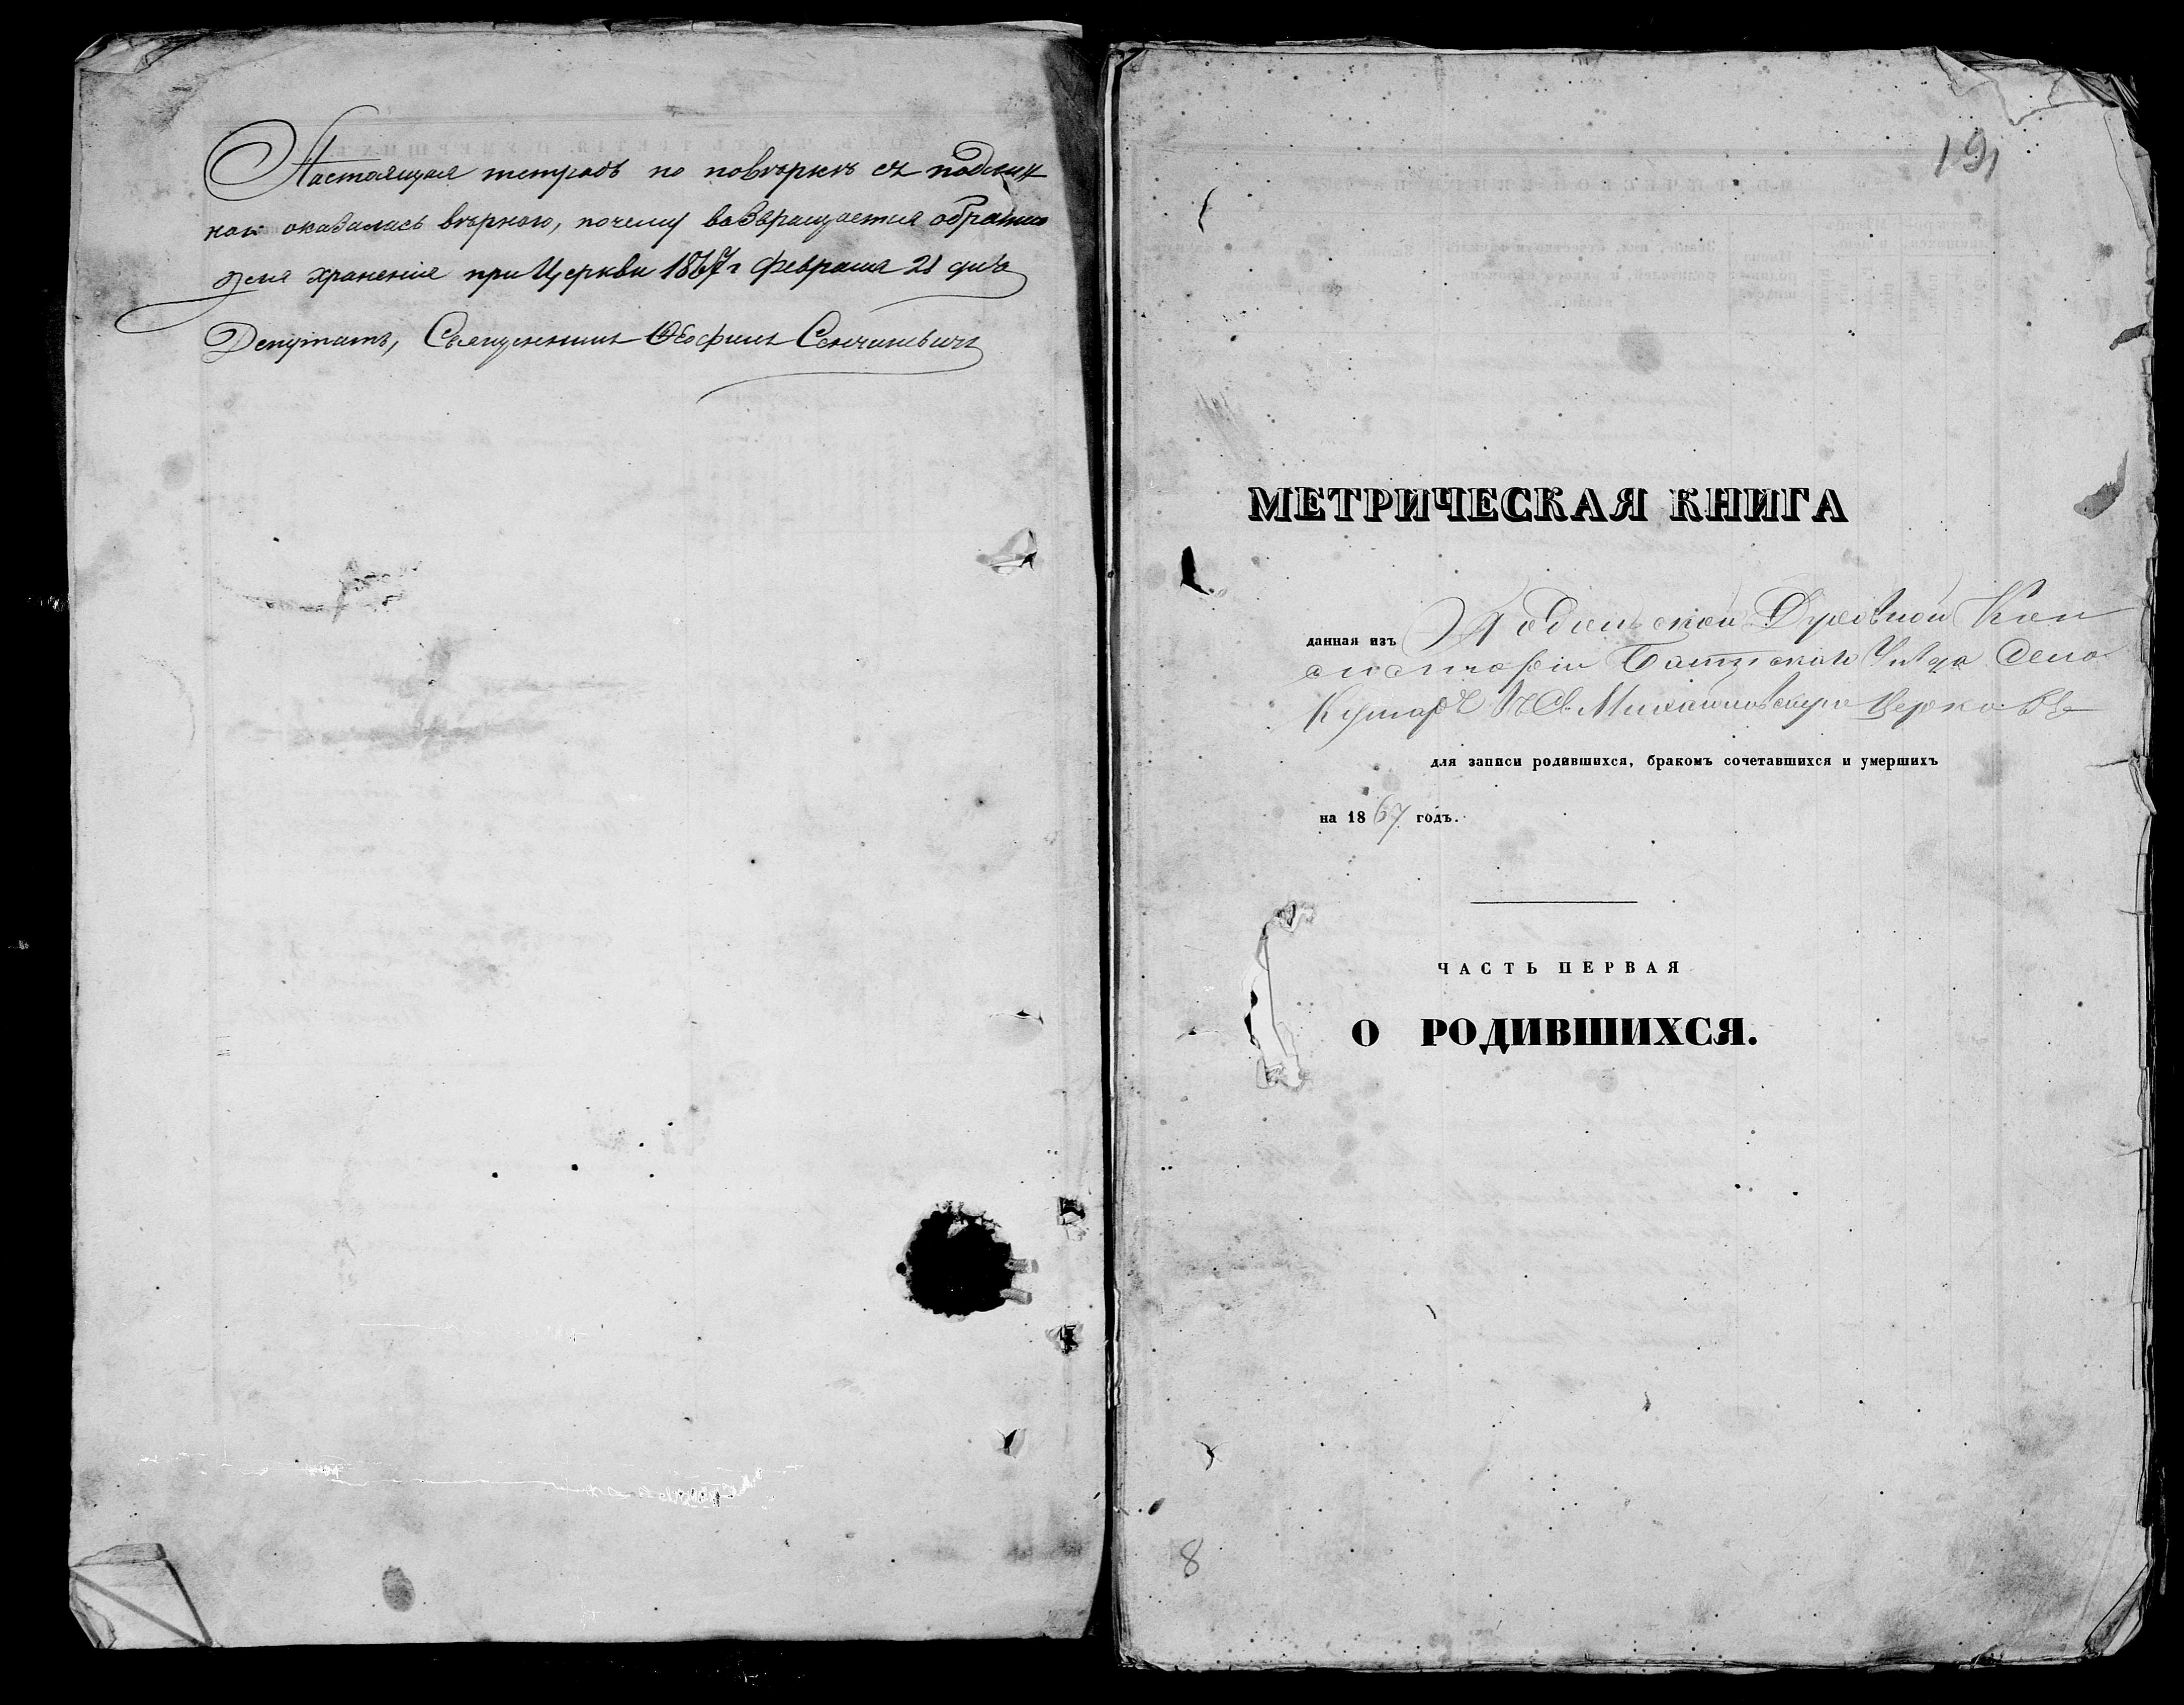 Настоящая тетрадь по повѣркѣ съ подлин
ной оказалась вѣрною, почему возвращается обратно
для храненія при Церкви 1867 г Февраля 21 дня
Депутатъ, Священникъ Ѳеофилъ Сенчикевичъ
191
МЕТРИЧЕСКАЯ КНИГА
данная изъ Подольской Духовной Кон
систоріи Балтскаго Уѣзда Села
Кумаръ Св. Михайловскую Церковь
для записи родившихся, бракомъ сочетавшихся и умершихъ
на 1867 годъ.
ЧАСТЬ ПЕРВАЯ
О РОДИВШИХСЯ.
8